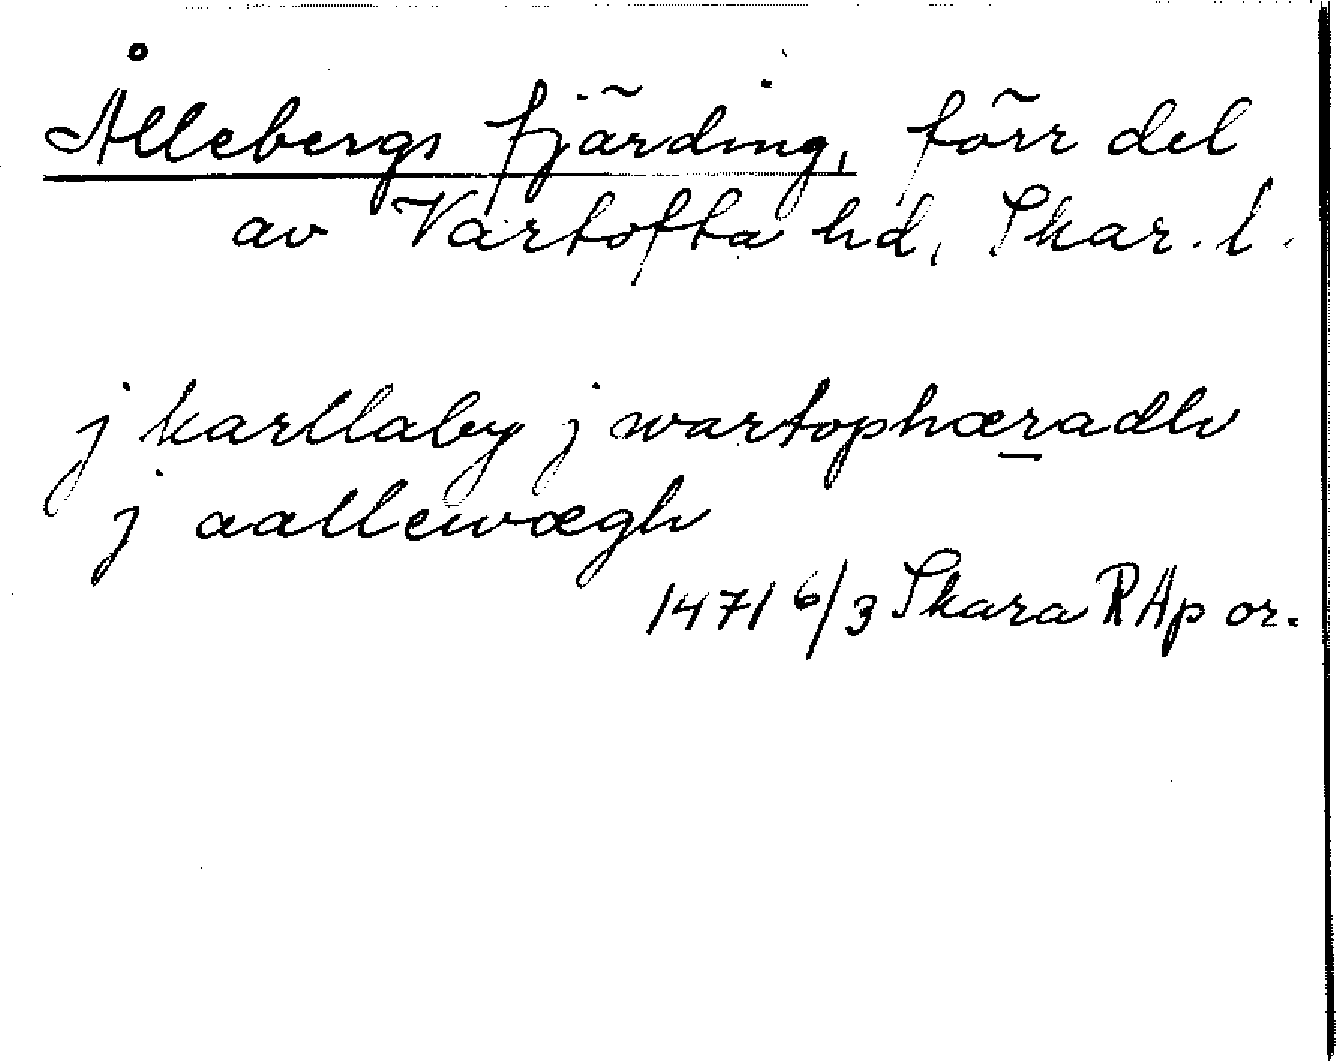 Ållebergs fjärding, förr del
av Vartofta hd, Skar. l.
j karllaby j wartophæradh
j aallewægh
1471 6/3 Skara RAp or.